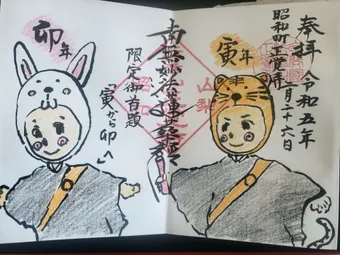 奉拝 令和五年
昭和町正覚寺
月二十六日
寅年
山梨
南無妙法蓮華経
昭和
限定御首題
「寅から卯へ」
卯年